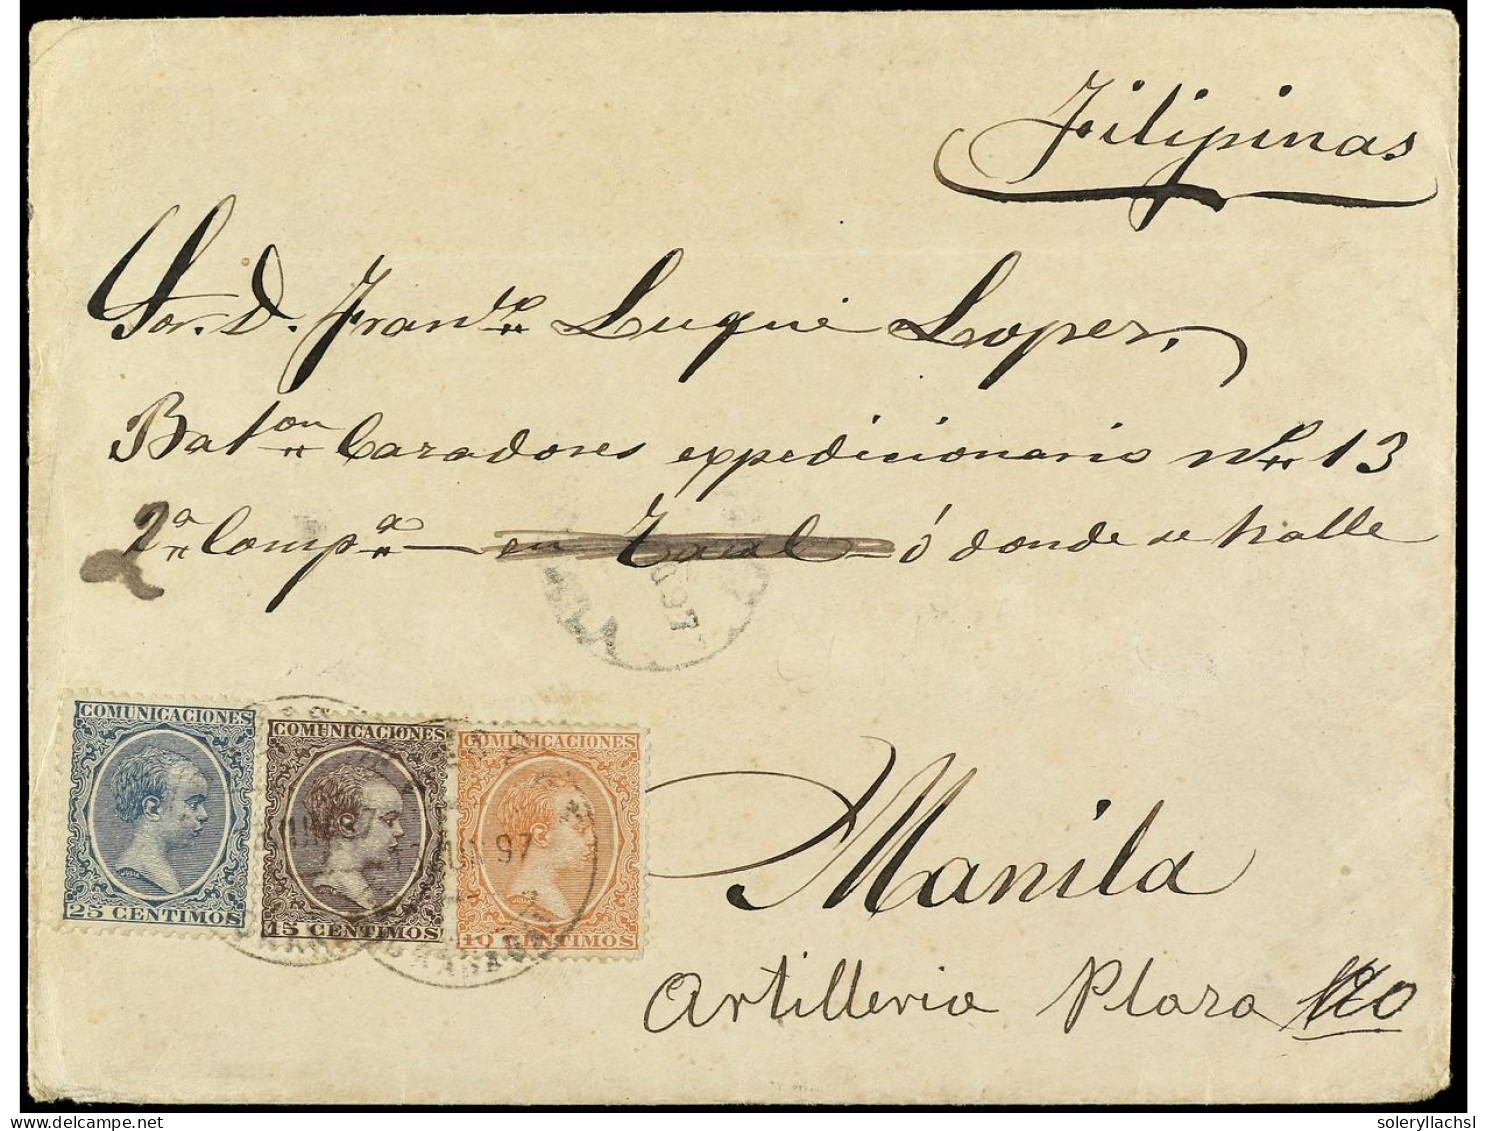 Filipinas
Sor. D. Franco Luque Lopez,
Baton Cazadores expedicionario No 13
2a Compa en Taal ó donde se halle
97
COMUNICACIONES
25 CENTIMOS
COMUNICACIONES
15 CENTIMOS
COMUNICACIONES
10 CENTIMOS
97
Manila
Artilleria Plaza
soleryllachsl